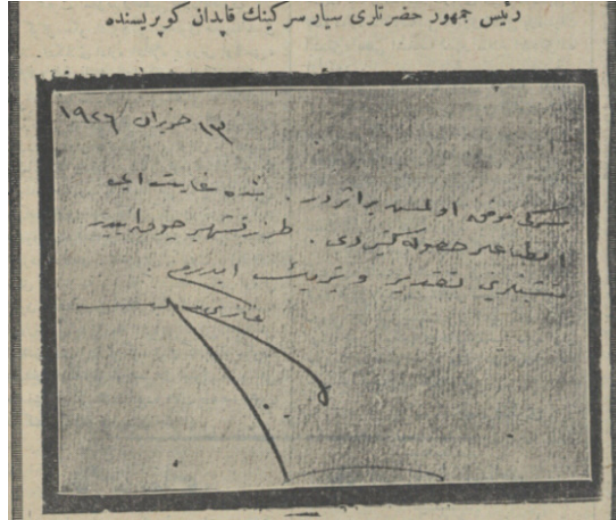 رئيس جمهور حضرتلرى سيار سركينك قاپدان كوپريسنده
١٣ حزيران ١٩٢٦
سركى موفق اولمش بر اثردر. بنده غايت ايى
انطباعلر حصوله كتيردى. طرز تشهير چوق
تقدير و تبريك ايدرم
غازى